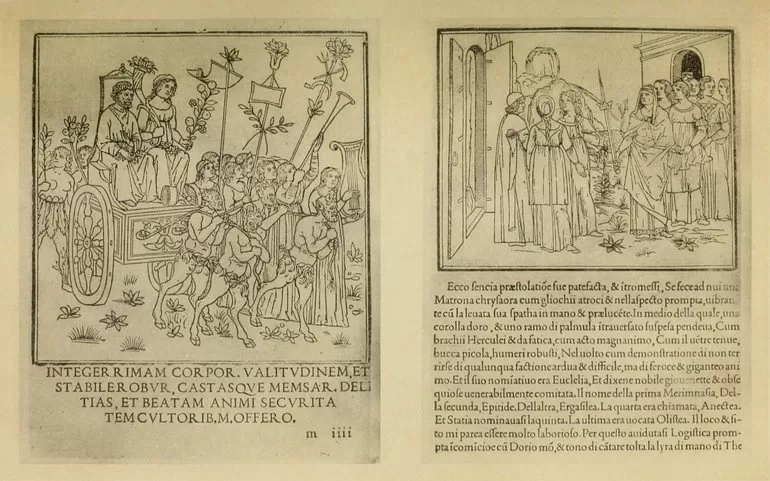 INTEGERRIMAM CORPOR. VALITVDINEM, ET
STABILEROBVR, CASTASQVE MEMSAR. DELI
TIAS, ET BEATAM ANIMI SECVRITA
TEMCVLTORIB. M. OFFERO.
m iiii
Ecco sencia præstolatiõe fue patefacta, & ĩtromessi, Se fece ad nui una
Matrona chrysaora cum gli ochii atroci & nellaspecto prompta, uibran
te cũ la leuata sua spatha in mano & prælucẽte. In medio della quale, una
corolla doro, & uno ramo di palmula ĩtrauersato suspesa pendeua, Cum
brachii Herculei & da fatica, cum acto magnanimo, Cum il uẽtre tenue,
bucca picola, humeri robusti, Nel uolto cum demonstratione di non ter
rirse di qualunqua factione ardua & difficile, ma di feroce & giganteo ani
mo. Et il suo nomĩatiuo era Euclelia, Et dixene nobile giouenette & obse
quiose uenerabilmente comitata. Il nome della prima Merimnasia, Del-
la secunda, Epitide. Dellaltra, Ergasilea. La quarta era chiamata, Anectea.
Et Statia nominauasi la quinta. La ultima era uocata Olistea. Il loco & si-
to mi parea essere molto laborioso. Per questo auidutasi Logistica prom-
pta ĩcomĩcioe cũ Dorio mõ, & tono di cãtare tolta la lyra di mano di The